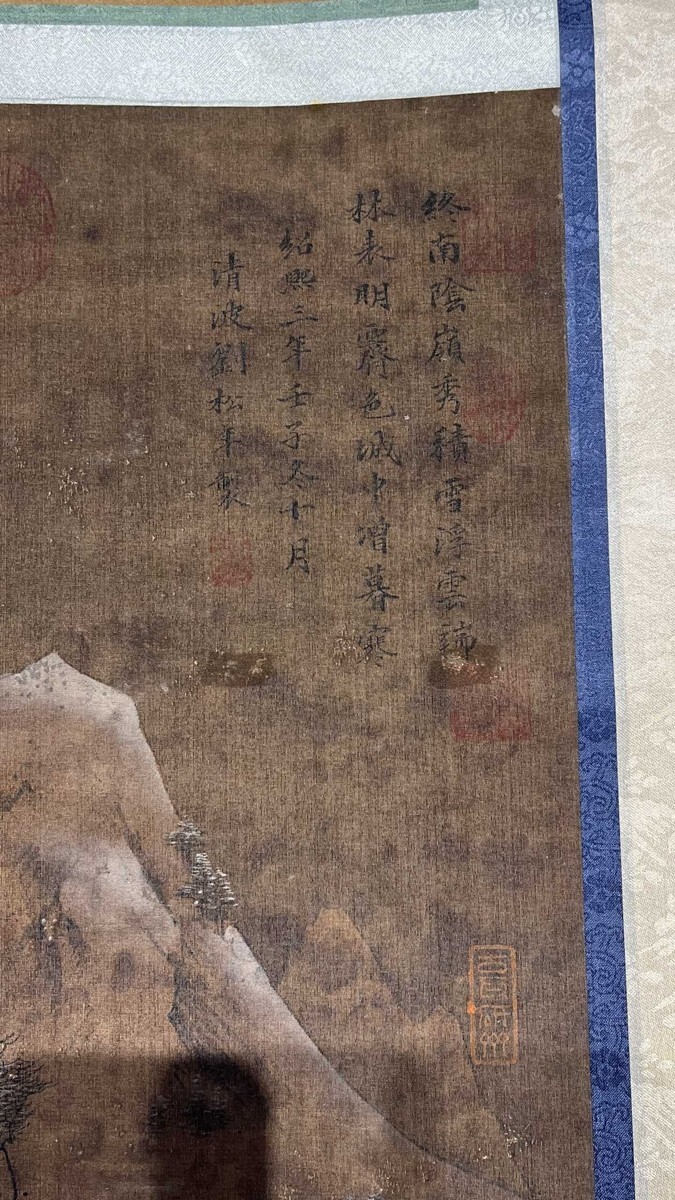 終南陰嶺秀積雪浮雲端
林表明霽色城中增暮寒
紹熙三年壬子冬十月
清波劉松年製